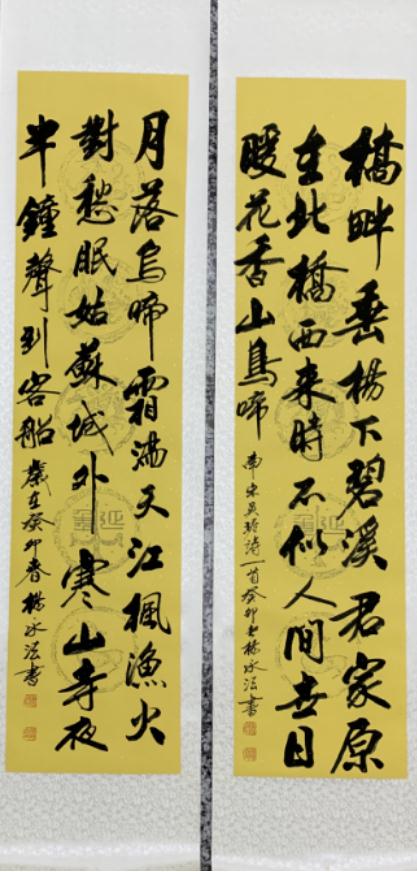 橋畔垂楊下碧溪君家原
在北橋西来時不似人間世日
暖花香山鳥啼
南宋吴琚诗一首癸卯春楊永法書
月落烏啼霜满天江楓漁火
對愁眠姑蘇城外寒山寺夜
半鐘聲到客船
歲在癸卯春楊永法書